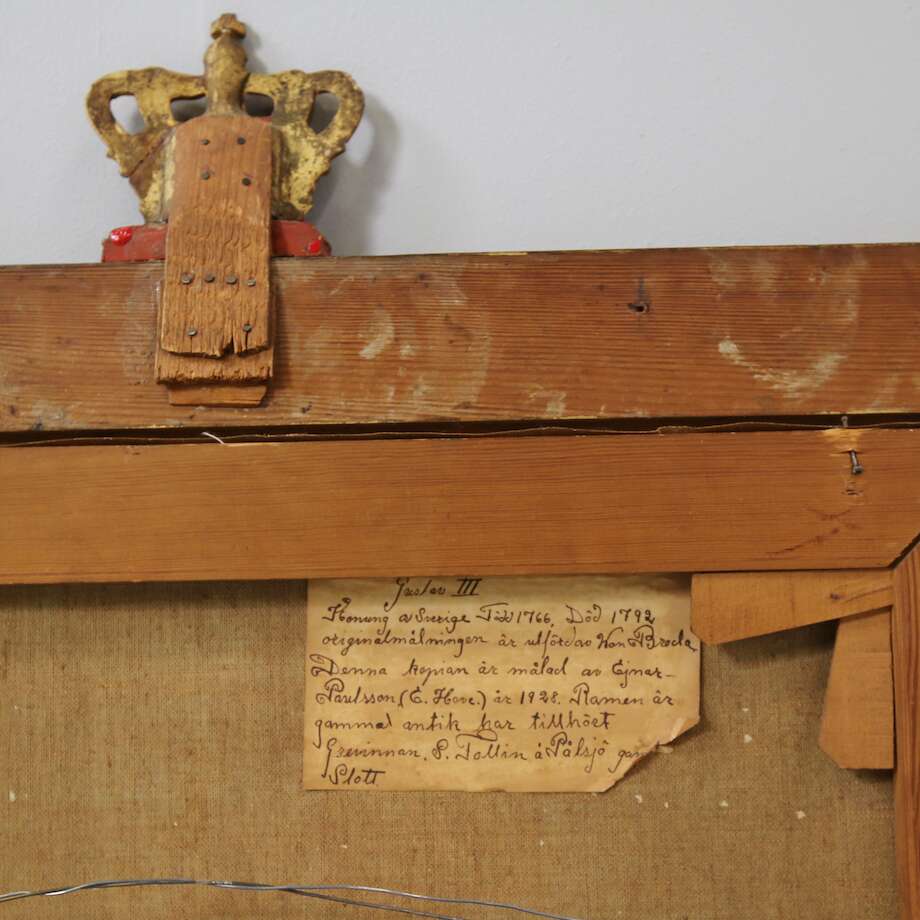 Gustav III
Konung av Sverige Född 1766. Död 1792
originalmålningen är utförd av Von Breda
Denna kopian är målad av Ejnar-
Paulsson, (E. Hove.) år 1928. Ramen är
gammal antik har tillhört
Grevinnan. P. Tollin å Pålsjö gamla
Slott.